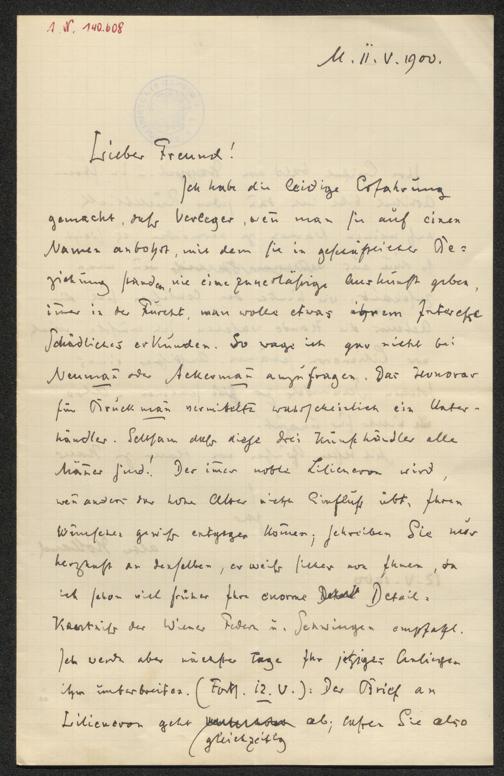 I. N. 140.608
M. II. V. 1900.
Lieber Freund!
Ich habe die leidige Erfahrung
gemacht, dass Verleger, weñ man sie auf einen
Namen anbohrt, mit dem sie in geschäftlicher Be-
ziehung standen, nie eine zuverlässige Auskunft geben,
im̄er in der Furcht, man wolle etwas ihrem Interesse
Schädliches erkunden. So wage ich gar nicht bei
Neumañ oder Ackermañ anzufragen. Das Honorar
für Bruckmañ vermittelte wahrscheinlich ein Unter-
händler. Seltsam dass diese drei Kunsthändler alle
Mäñer sind! Der im̄er noble Liliencron wird,
weñ anders das hohe Alter nicht Einfluß übt, Ihren
Wünschen gewiss entgegen kom̄en; schreiben Sie nur
herzhaft an denselben, er weiß sicher von Ihnen, da
ich schon viel früher Ihre enorme Detail-
Keñtniß der Wiener Federn u. Schwingen empfahl.
Ich werde aber nächster Tage Ihr jetziges Anliegen
ihm unterbreiten. (Forts. 12. V.): Der Brief an
Liliencron geht ab; lassen Sie also
(gleichzeitig